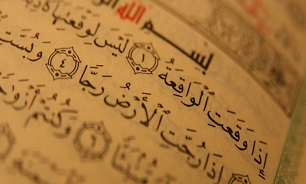 بِسْمِ اللَّهِ
إِذَا وَقَعَتِ الْوَاقِعَةُ ١ لَيْسَ لِوَقْعَتِهَا
إِذَا رُجَّتِ الْأَرْضُ رَجًّا ٤ وَبُسَّتِ
مُّنۢبَثًّا ٦ وَكُنتُمْ أَزْوَاجًا